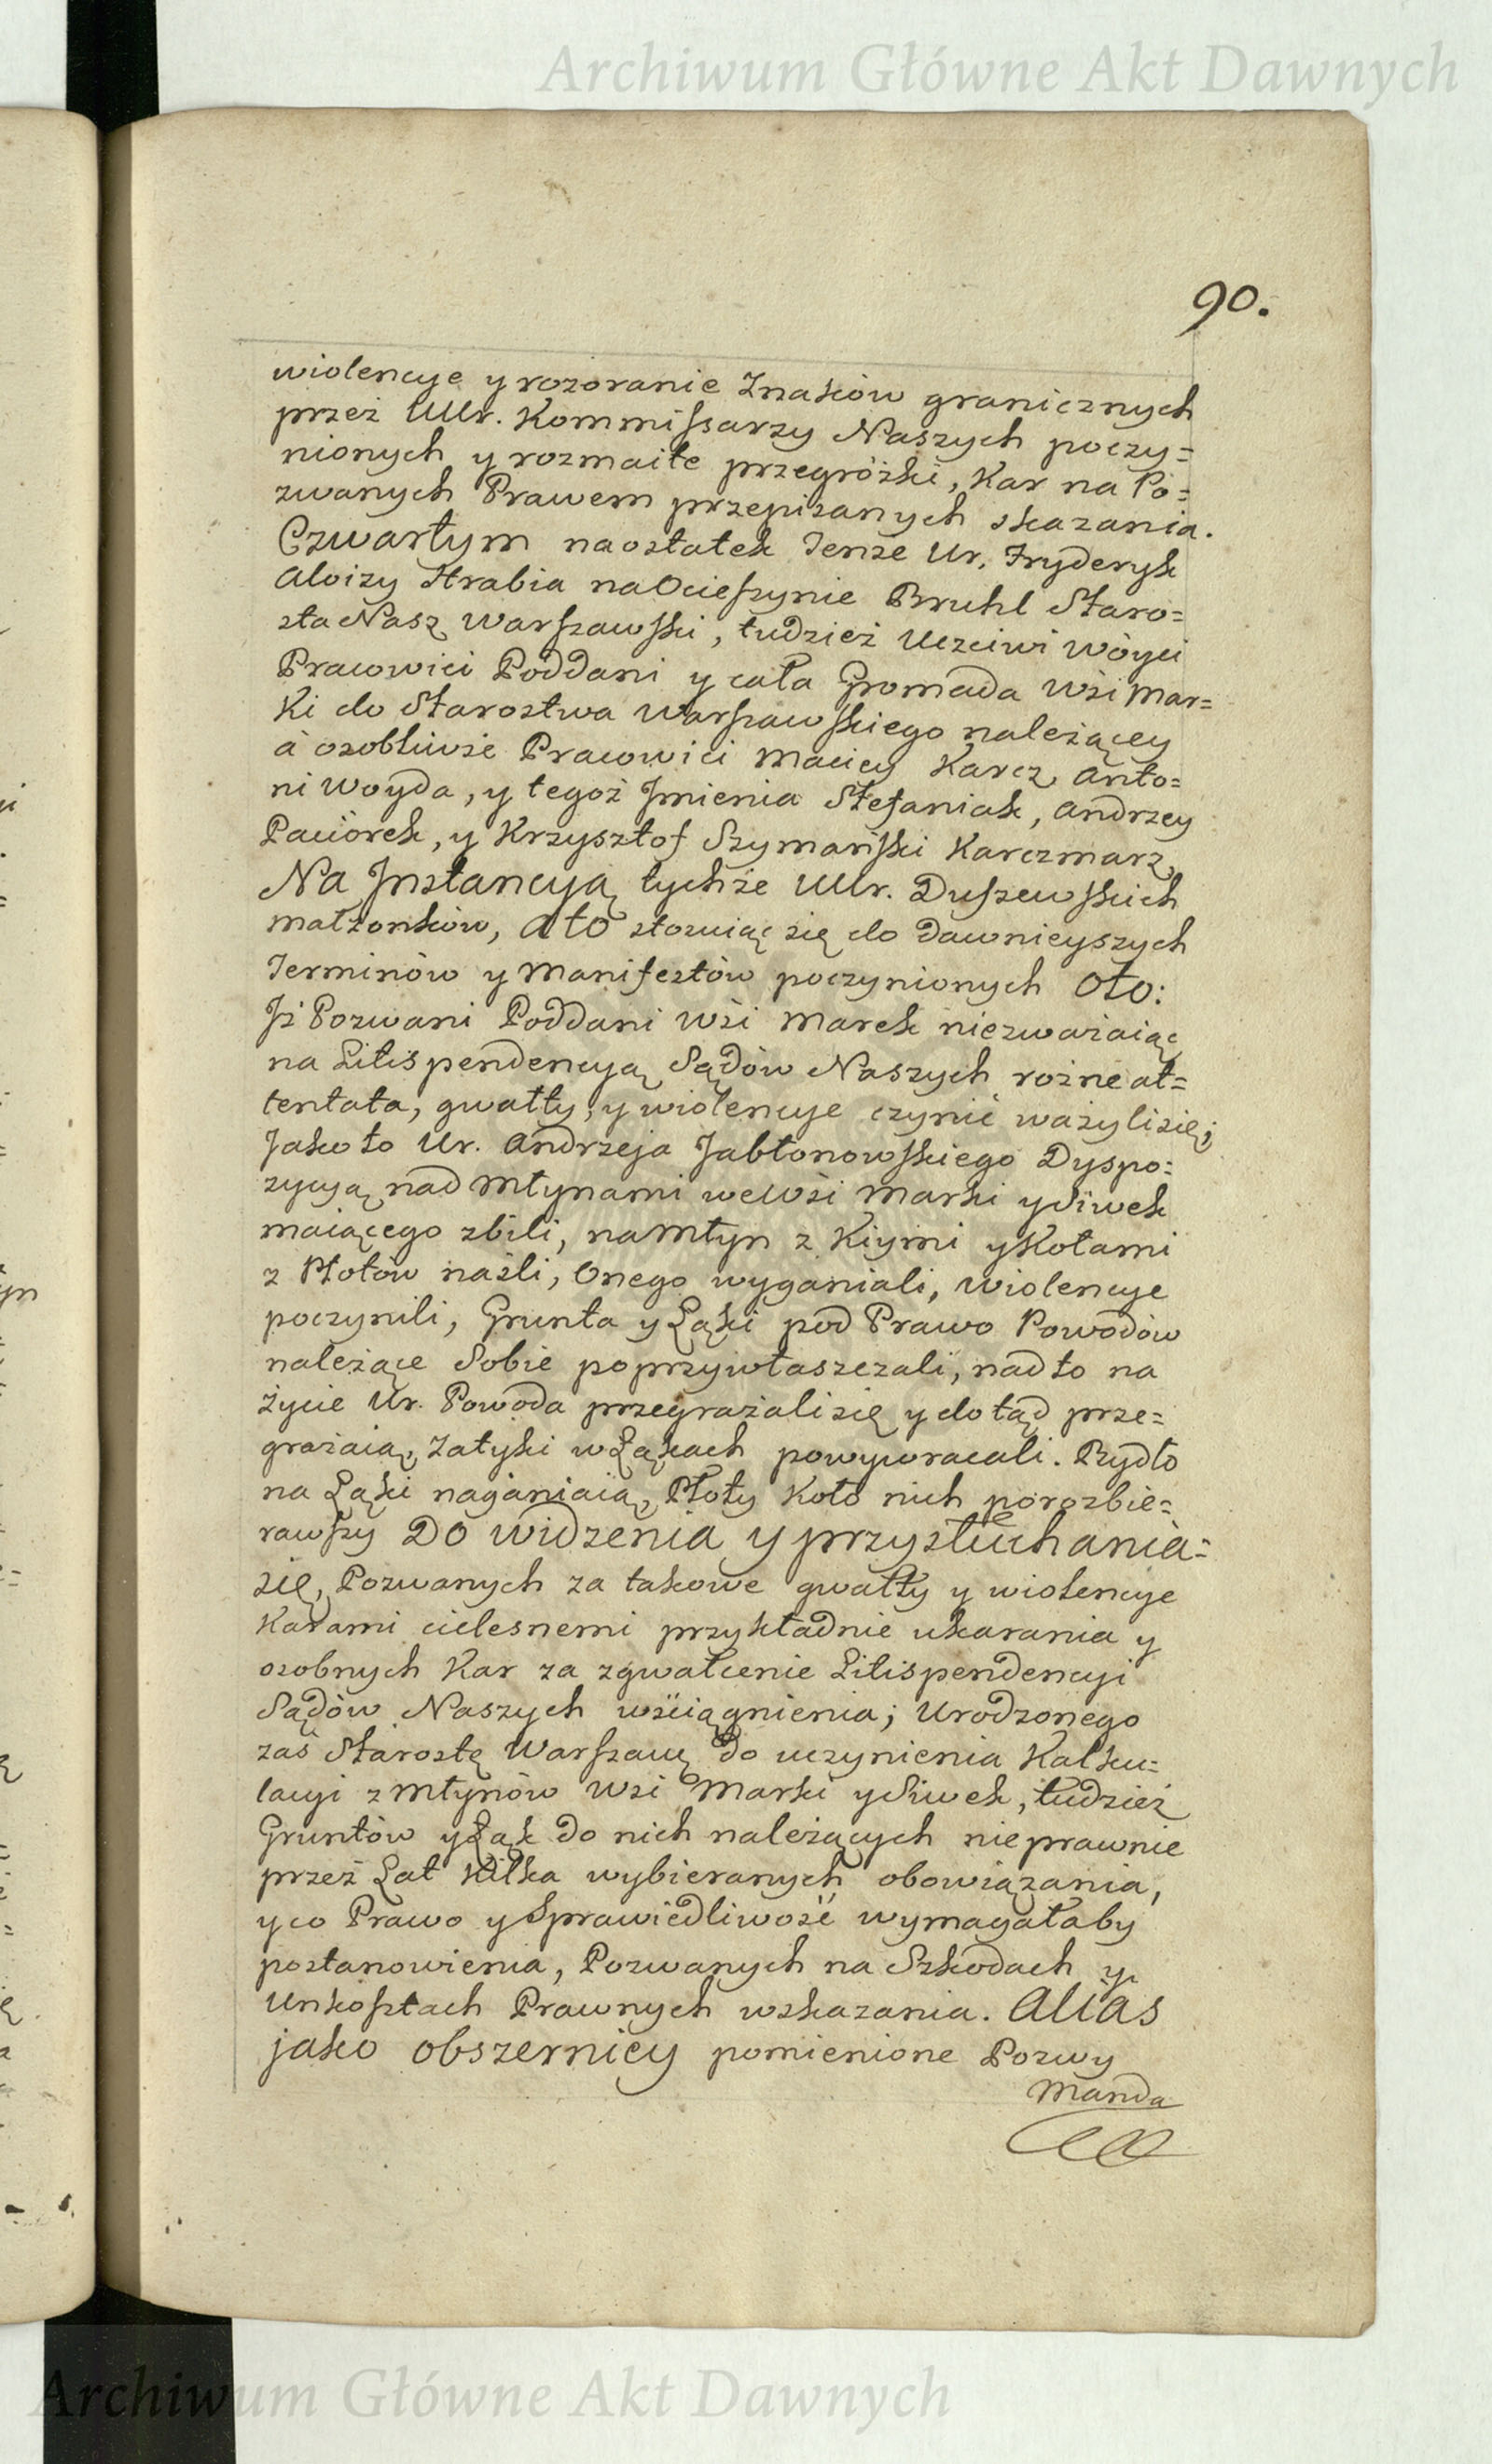 Archiwum Główne Akt Dawnych
90.
wiolencye y rozoranie Znaków granicznych
przez UUr. Kommissarzy Naszych poczy=
nionych y rozmaite przegróżki, Kar na Po=
zwanych Prawem przepisanych skazania.
Czwartym naostatek Tenże Ur. Fryderyk
Aloizy Hrabia na Ocieszynie Bruhl Staro=
sta Nasz Warszawski, tudzież Uczciwi Wóyci
Pracowici Poddani y cała Gromada Wsi Mar=
ki do Starostwa Warszawskiego należącey
á osobliwie Pracowici Maciey Karcz, Anto=
ni Woyda, y tegoż Jmienia Stefaniak, Andrzey
Paciórek, y Krzysztof Szymański Karczmarz,
Na Jnstancyą tychże UUr. Duszewskich
Małżonków, Ato stosuiąc się do dawnieyszych
Terminów y Manifestów poczynionych Oto:
Jż Pozwani Poddani Wsi Marek niezważaiąc
na Litispendencyą Sądów Naszych rożne at=
tentata, gwałty, y wiolencye czynić ważyli się;
Jako to Ur. Andrzeja Jabłonowskiego Dyspo=
zycyą nad Młynami we Wsi Marki y Siwek
maiącego zbili, na Młyn z Kiymi y Kołami
z Płotów naśli, Onego wyganiali, wiolencye
poczynili, Grunta y Łąki pod Prawo Powodów
należące Sobie poprzywłaszczali, nad to na
życie Ur. Powoda przegrażali się y do tąd prze=
grażaią, Zatyki w Łąkach powywracali. Bydło
na Łąki naganiaią, Płoty Koło nich porozbie=
rawszy Do widzenia y przysłuchania=
się, Pozwanych za takowe gwałty y wiolencye
Karami cielesnemi przykładnie ukarania y
osobnych Kar za zgwałcenie Litispendencyi
Sądów Naszych wściągnienia; Urodzonego
zaś Starostę Warszaws do uczynienia Kalku=
lacyi z Młynów Wsi Marki y Siwek, tudzież
Gruntów y Łąk do nich należących nieprawnie
przez Lat Kilka wybieranych obowiązania,
y co Prawo y Sprawiedliwość wymagałaby
postanowienia, Pozwanych na Szkodach y
Unkosztach Prawnych wskazania. Alias
jako obszerniey pomienione Pozwy
Manda
Archiwum Główne Akt Dawnych